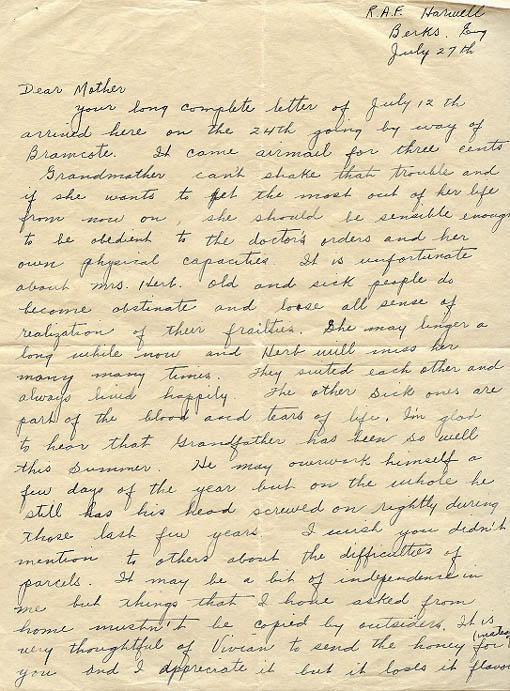 R.A.F. Harwell
Berks. Eng
July 27th
Dear Mother
your long complete letter of July 12th
arrived here on the 24th going by way of
Bramcote. It came airmail for three cents
Grandmother can't shake that trouble and
if she wants to get the most out of her life
from now on, she should be sensible enough
to be obedient to the doctor's orders and her
own physical capacities. It is unfortunate
about Mrs. Herb. Old and sick people do
become obstinate and loose all sense of
realization of their frailties. She may linger a
long while now and Herb will miss her
many many times. They suited each other and
always lived happily. The other sick ones are
part of the blood and tears of life. I'm glad
to hear that Grandfather has been so well
this summer. He may overwork himself a
few days of the year but on the whole he
still has his head screwed on rightly during
those last few years. I wish you didn't
mention to others about the difficulties of
parcels. It may be a bit of independence in
me but things that I have asked from
home mustn't be copied by outsiders. It is
very thoughtful of Vivian to send the honey for
you and I appreciate it but it loses it flavor